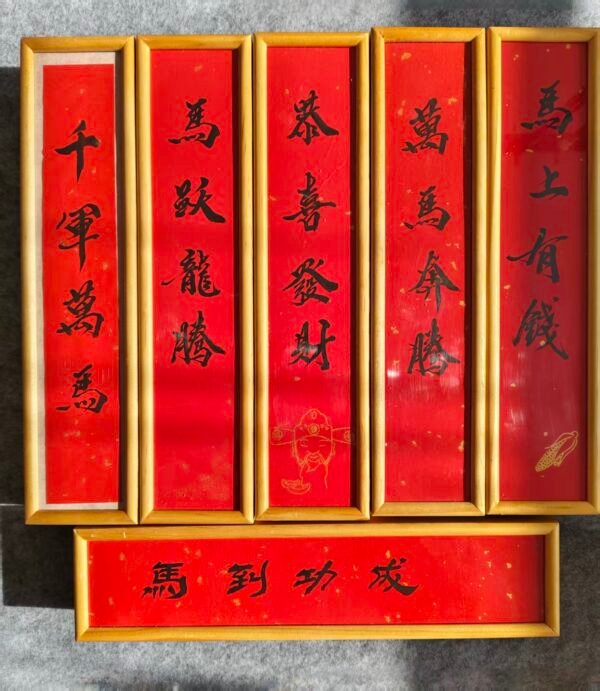 千軍萬馬
馬跃龍騰
恭喜發財
萬馬奔騰
馬上有錢
馬到功成